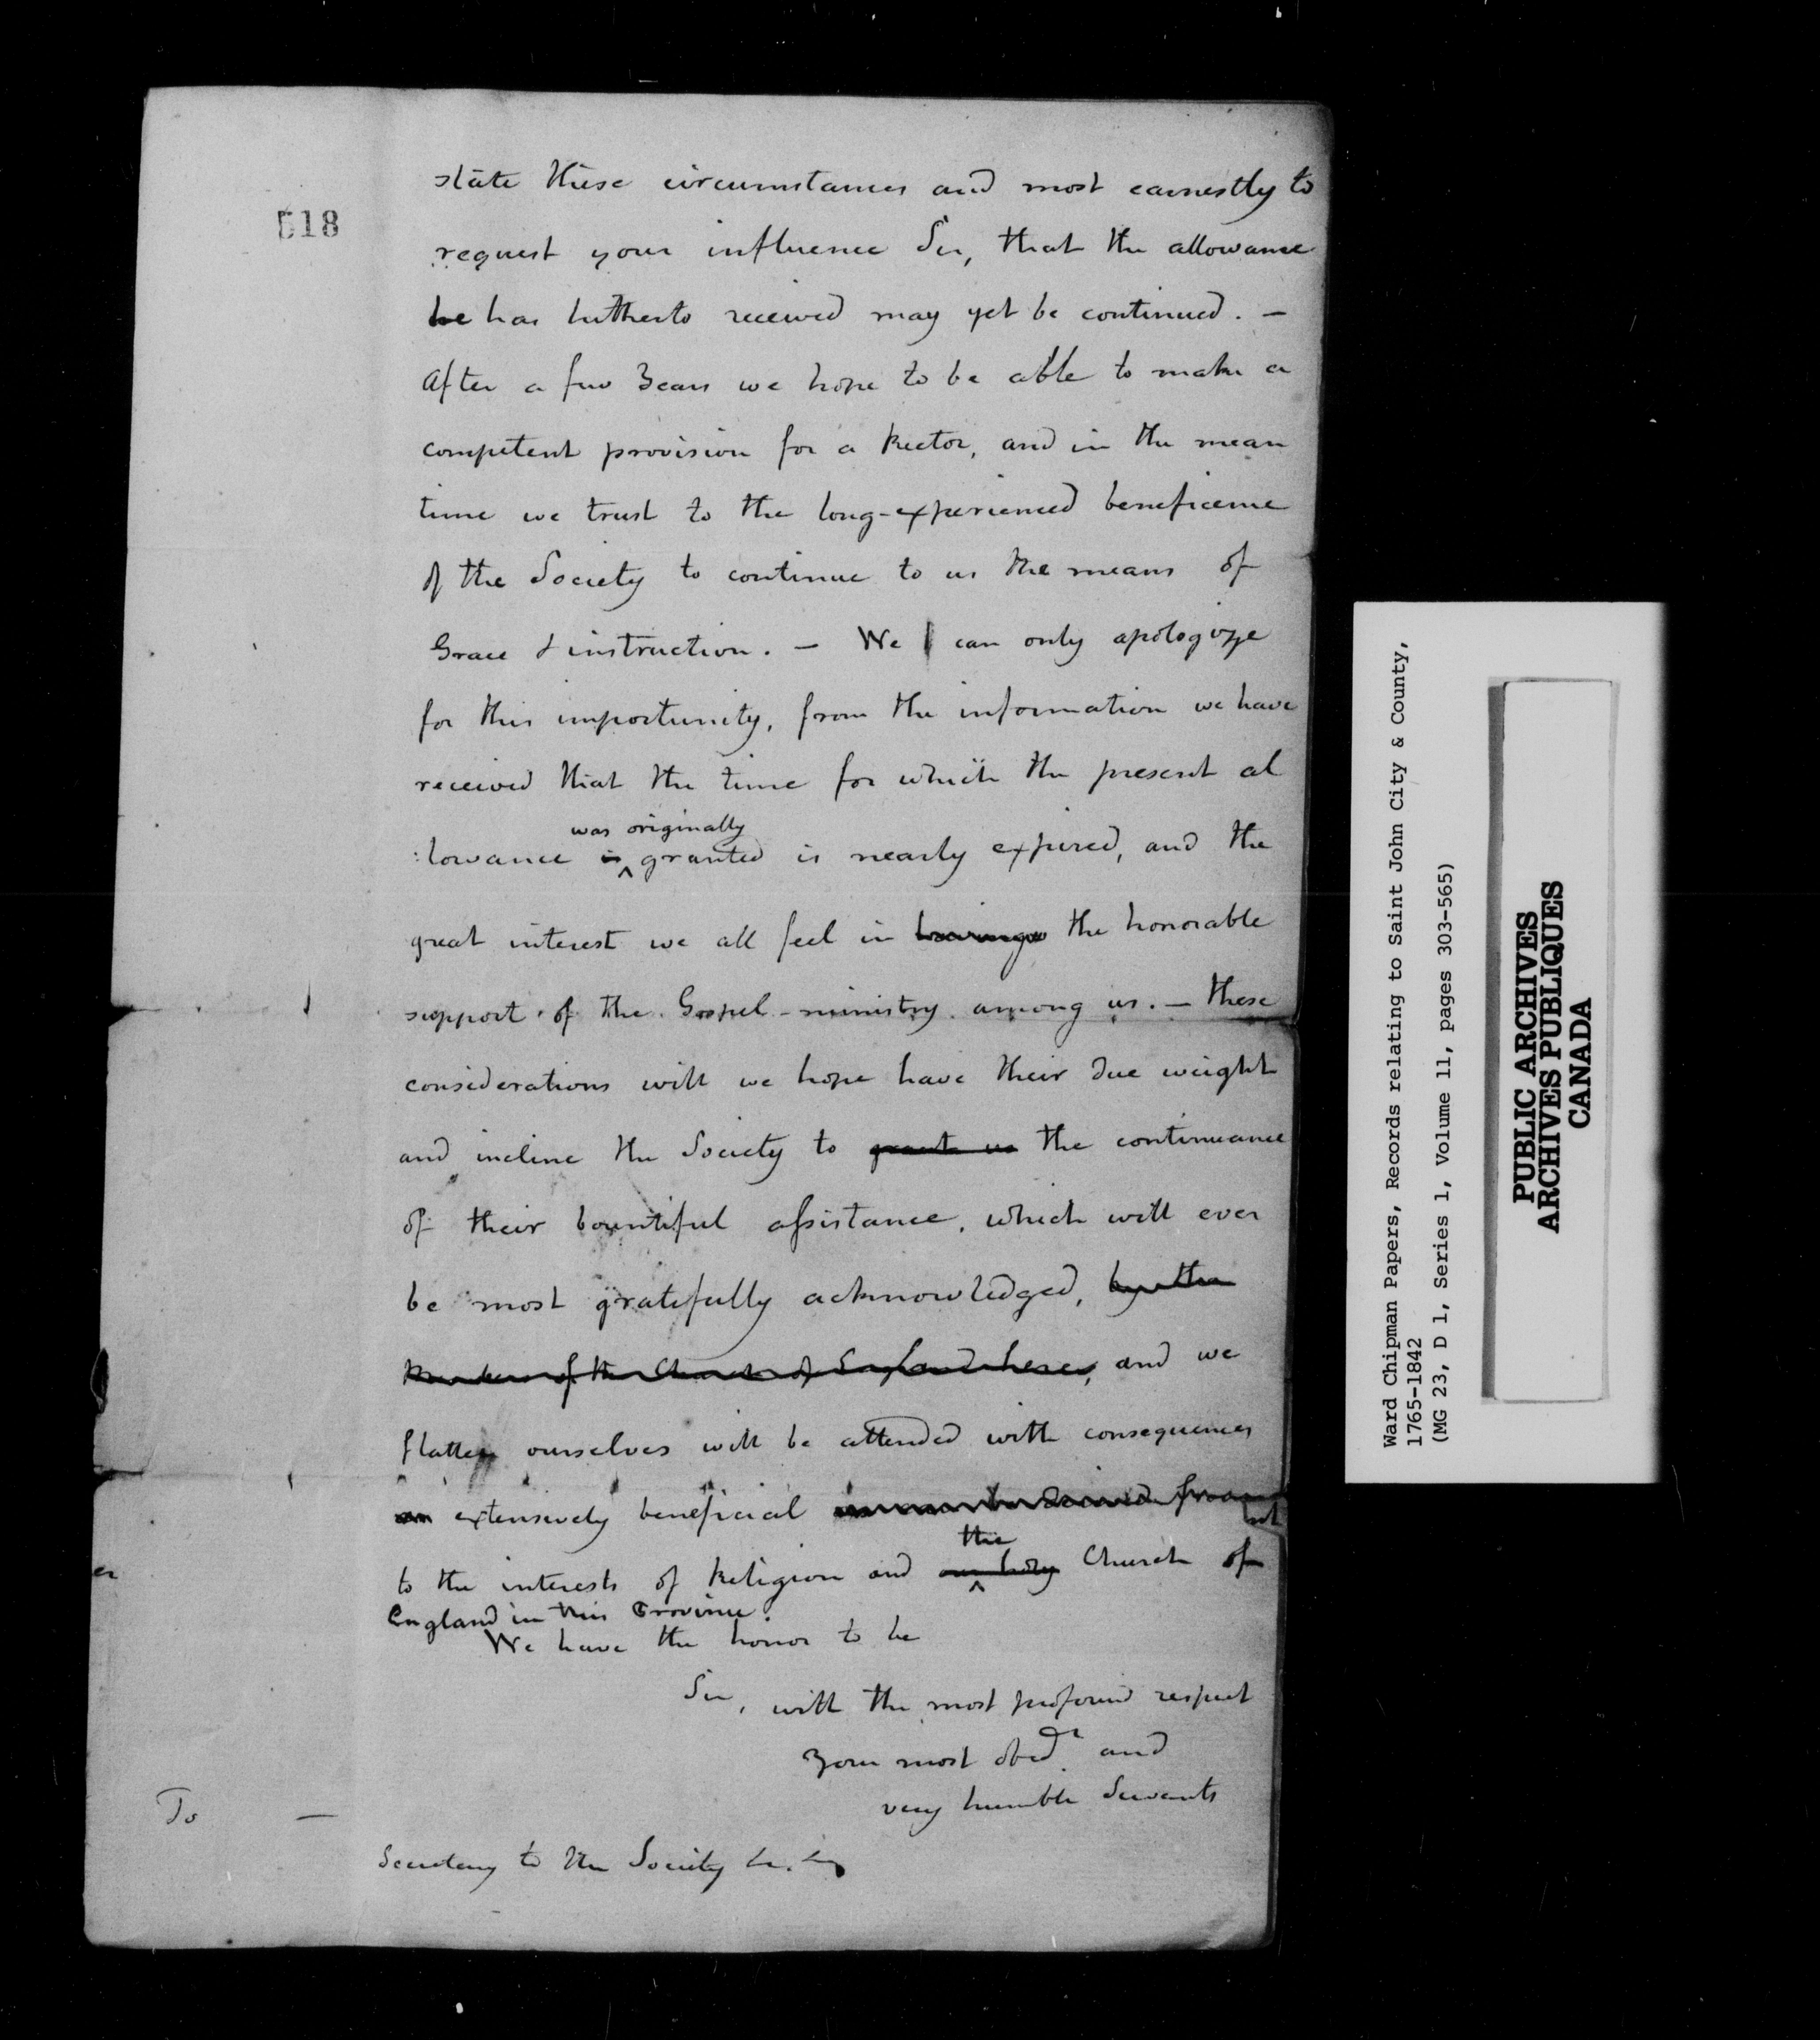 518
state these circumstances and most earnestly to
request your influence Sir, that the allowance
he has hitherto received may yet be continued. —
After a few Years we hope to be able to make a
competent provision for a Rector, and in the mean
time we trust to the long-experienced beneficence
of the Society to continue to us the means of
Grace & instruction. — We can only apologize
for this importunity, from the information we have
received that the time for which the present al
was originally
:lowance is granted is nearly expired, and the
great interest we all feel in the honorable
support of the Gospel-ministry among us. — these
considerations will we hope have their due weight
and incline the Society to grant us the continuance
of their bountiful assistance, which will ever
be most gratefully acknowledged, by the
Members of the Church of England here, and we
flatter ourselves will be attended with consequences
extensively beneficial
the
to the interests of Religion and our holy Church of
England in this Province.
We have the honor to be
Sir, with the most profound respect
Your most obedt and
very humble Servants
To —
Secretary to the Society &c. &c
er
Ward Chipman Papers, Records relating to Saint John City & County,
1765-1842
(MG 23, D 1, Series 1, Volume 11, pages 303-565)
PUBLIC ARCHIVES
ARCHIVES PUBLIQUES
CANADA